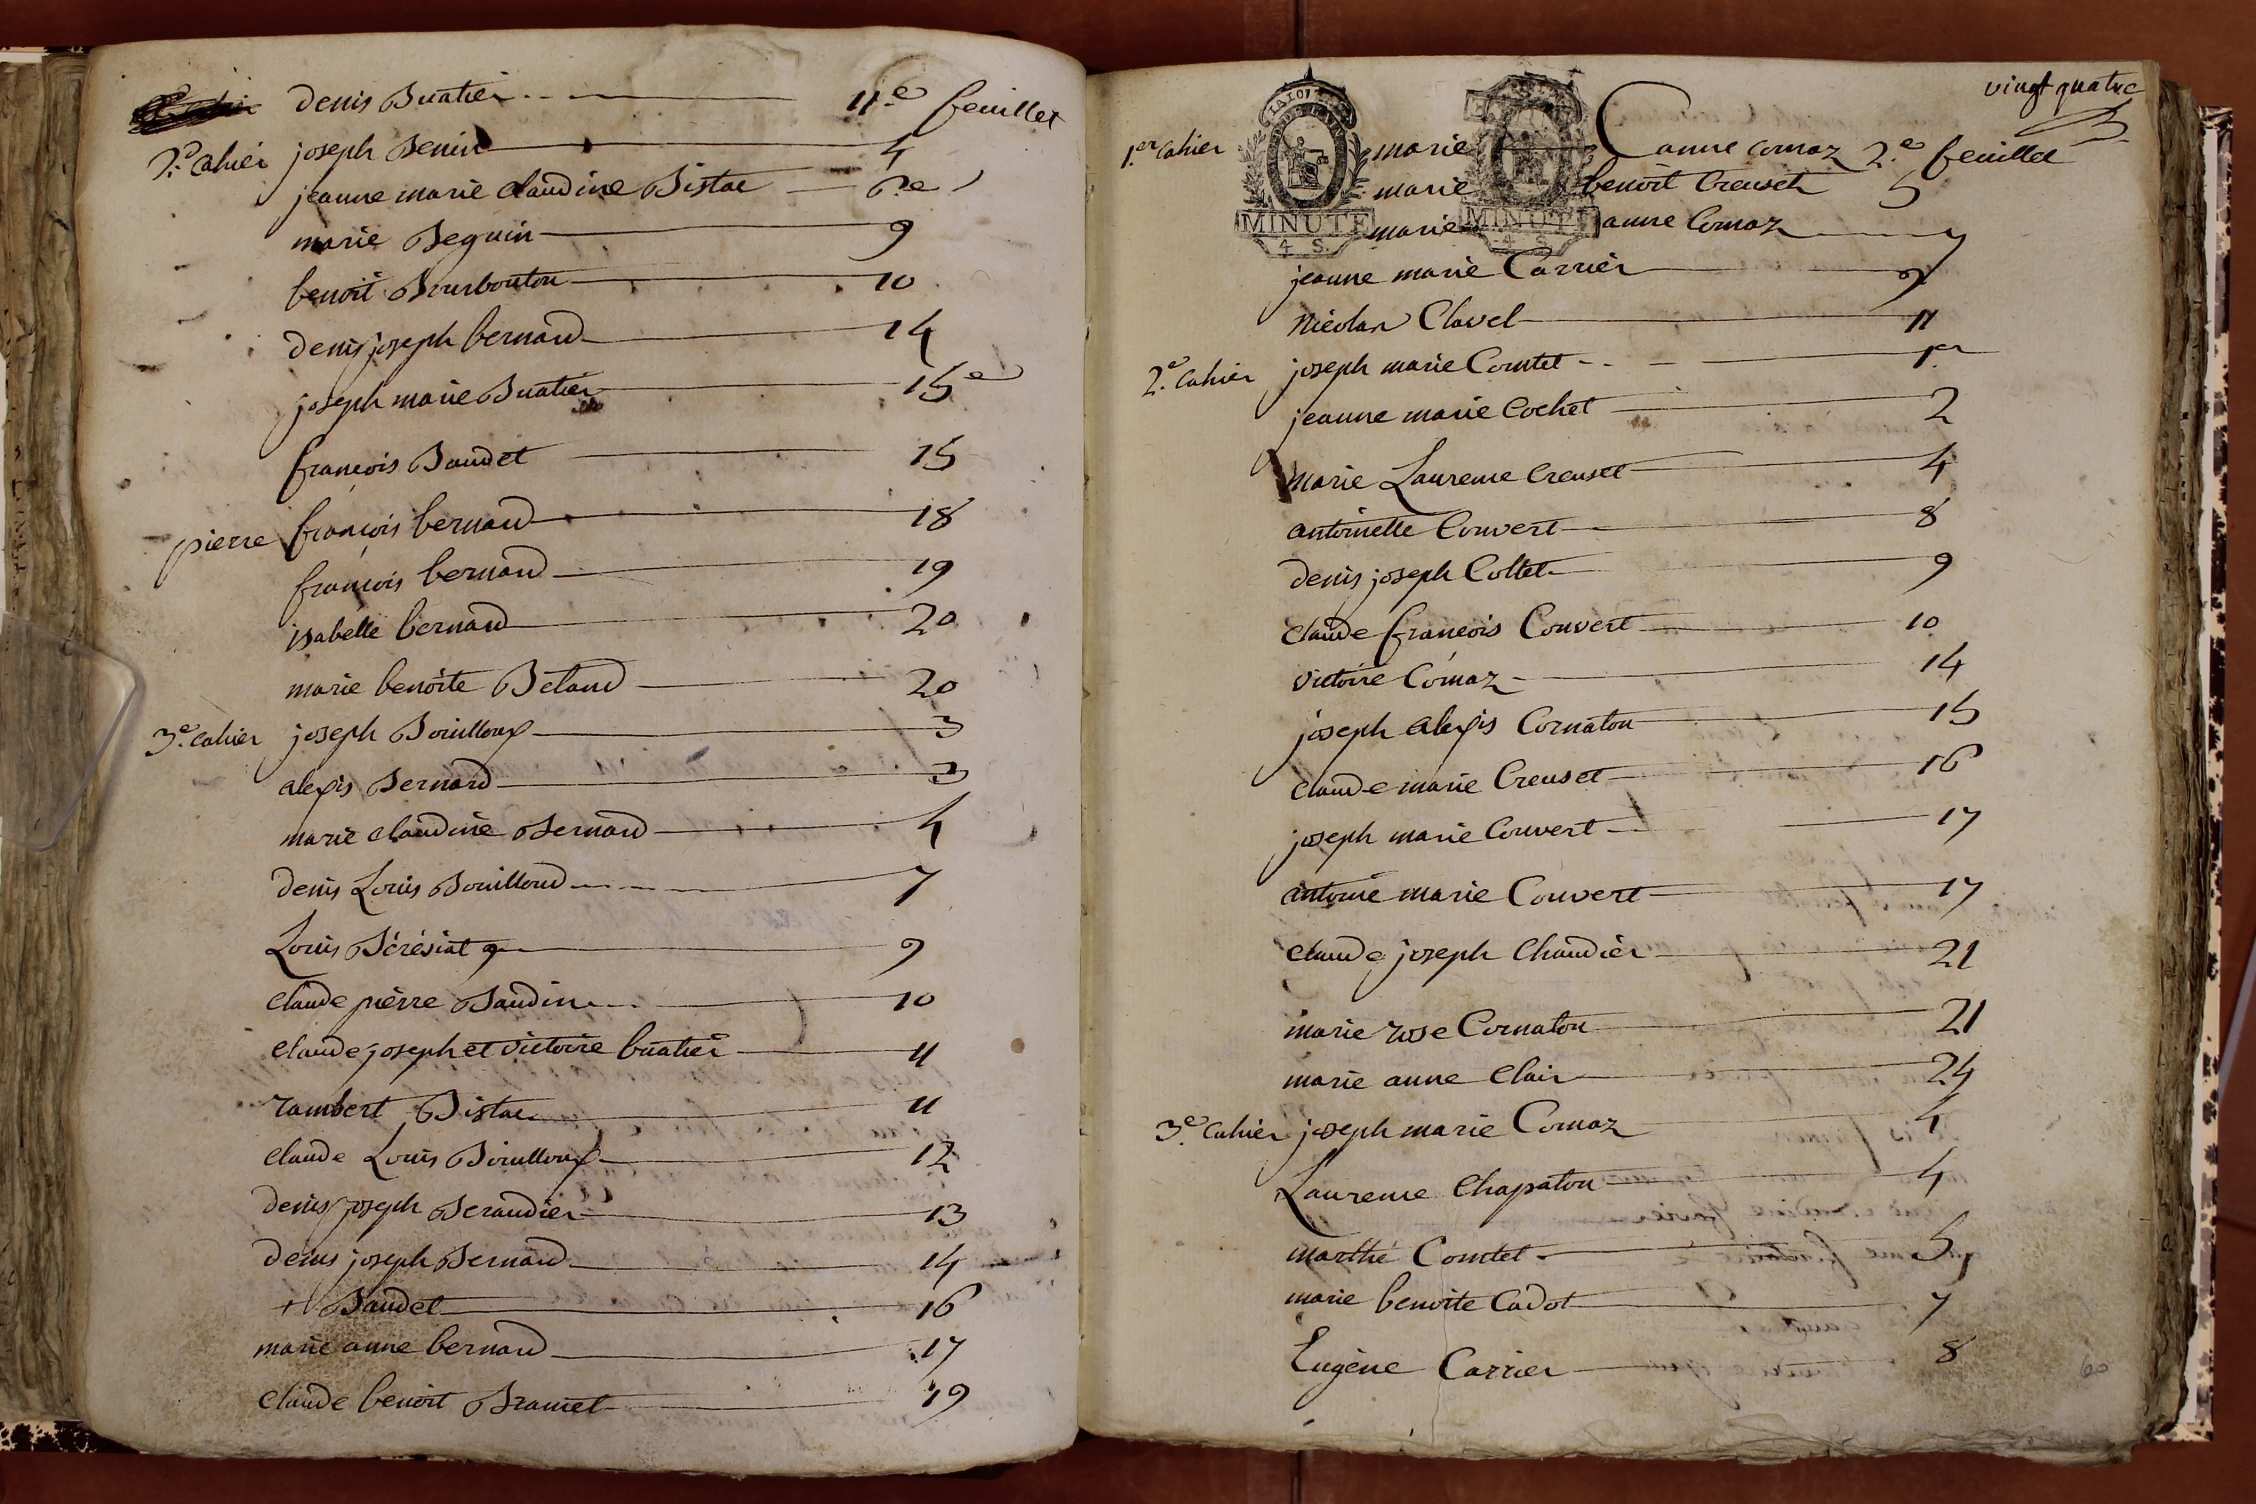 denis Buatier 11.e feuillet
2.e cahier joseph Benin 4
jeanne marie claudine Bistac 6.e
marie Beguin 9
benoit Bourbouton 10
denis joseph bernard 14
joseph marie Buatier 15e
françois Baudet 15
pierre françois bernard 18
françois bernard 19
isabelle bernard 20
marie benoite Betand 20
3.e cahier joseph Bouilloux 3
alexis Bernard 3
marie claudine Bernard 4
denis Louis Bouilloud 7
Louis Bérésiat 9
claude pierre Baudin 10
claude joseph et victoire buatier 11
rambert Bistac 11
claude Louis Bouilloux 12
denis joseph Beraudier 13
denis joseph Bernard 14
+ Baudet 16
marie anne bernard 17
claude benoit Bramet 19
vingt quatre
1.er cahier marie anne Cornaz 2.e feuillet
marie benoit Creuset 5
marie anne Cornaz 7
MINUTE MINUTE
4 S. 4 S
jeanne marie Carrier 9
Nicolas Clavel 11
2.e cahier joseph marie Comtet 1.er
jeanne marie Cochet 2
marie Laurence Creuset 4
antoinette Convert 8
denis joseph Collet 9
claude françois Convert 10
victoire Cornaz 14
joseph alexis Cornaton 15
claude marie Creuset 16
joseph marie Convert 17
antoine marie Convert 17
claude joseph Chaudier 21
marie rose Cornaton 21
marie anne Clair 24
3.e cahier joseph marie Cornaz 4
Laurence Chapaton 4
marthe Comtet 5
marie benoite Cadot 7
Eugène Carrier 8
60